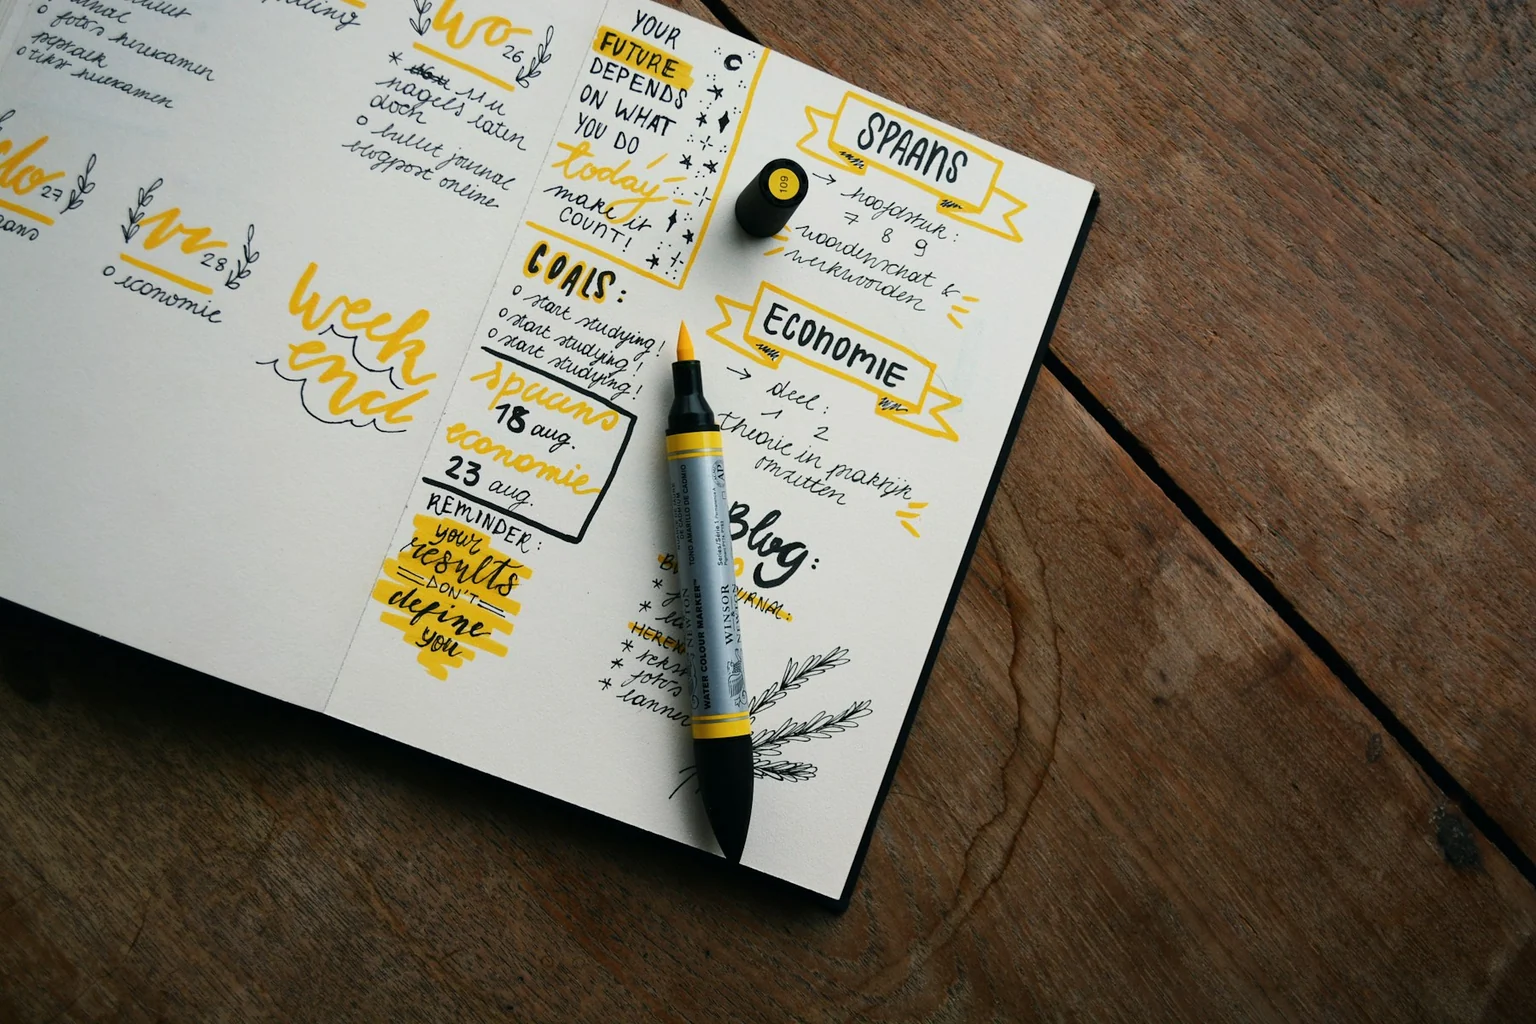 foto's
peptalk
wo 26
11 u
nagels laten
doen
o bullet journal
blogpost online
do 27
vr 28
o economie
week
end
YOUR
FUTURE
DEPENDS
ON WHAT
YOU DO
today
make it
COUNT!
GOALS:
o start studying!
o start studying!
o start studying!
spaans
18 aug.
economie
23 aug.
REMINDER:
your
results
DON'T
define
you
SPAANS
→ hoofdstuk:
7 8 9
woordenschat &
werkwoorden
ECONOMIE
→ deel:
1 2
theorie in praktijk
omzetten
Blog:
URNAL:
* tekst
* foto's
* banner
109
WINSOR
NEWTON
WATER COLOUR MARKER™